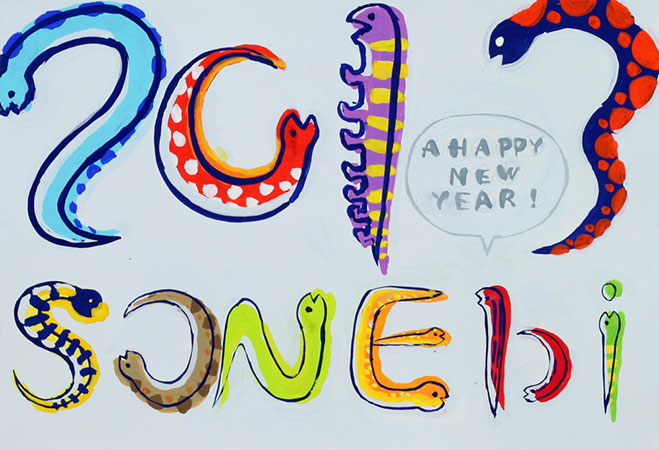 2013
A HAPPY
NEW
YEAR!
SONEbi